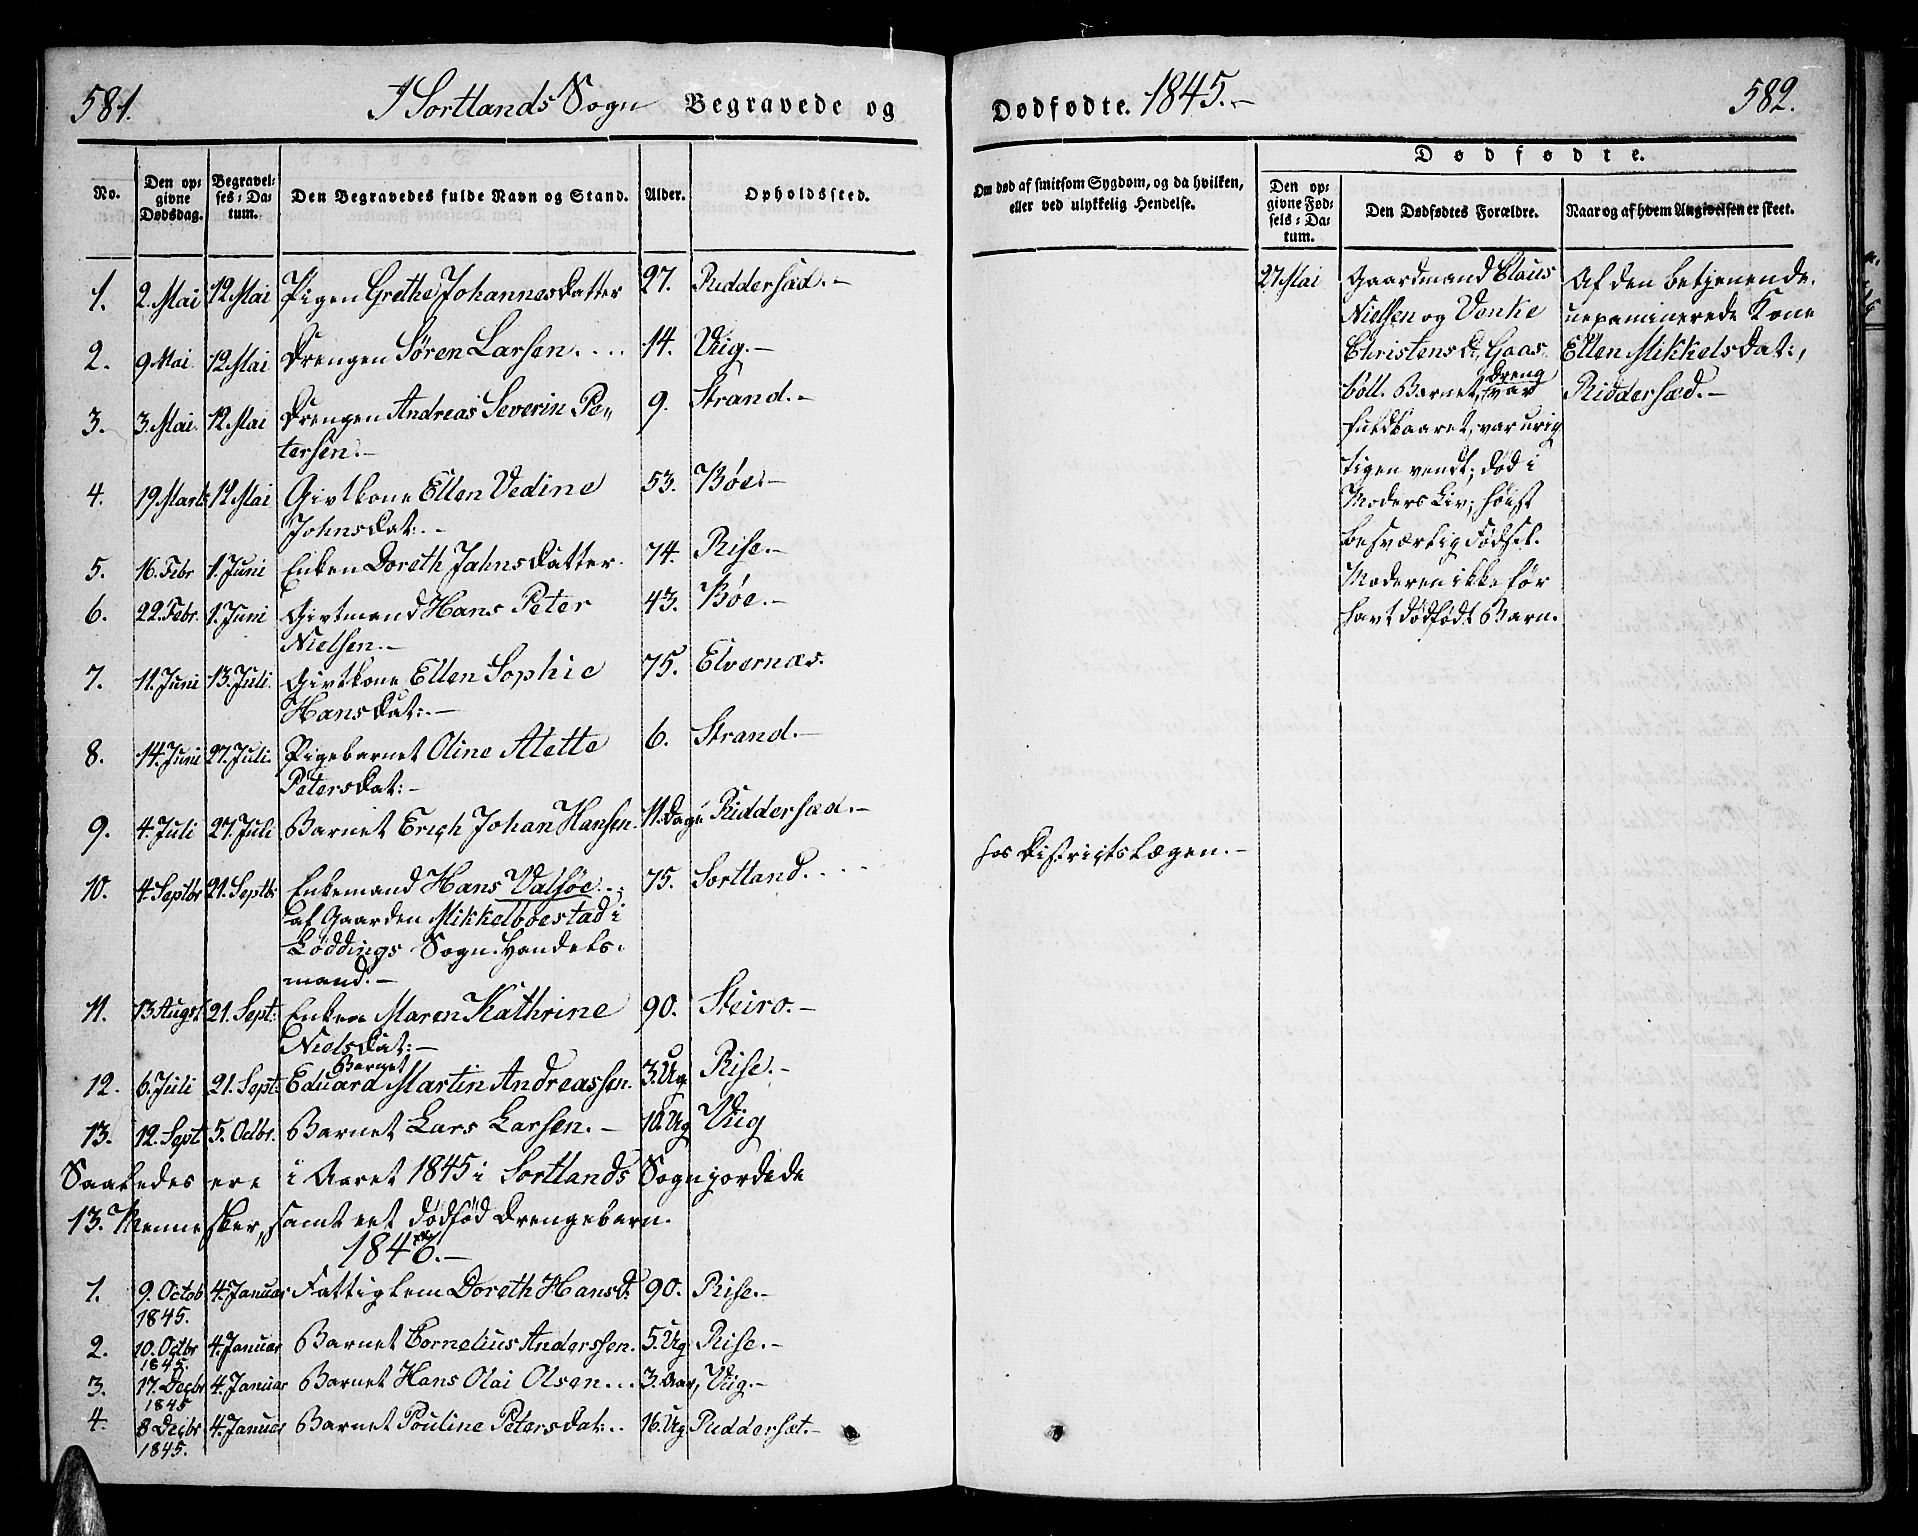 581.
I Sortlands Sogn Begravede og
No.
Den op-
givne
Dødsdag.
Begravel-
ses-Da-
tum.
Den Begravedes fulde Navn og Stand.
Alder.
Opholdssted.
1. 2. Mai 12 Mai Pigen Grethe Johannesdatter 27. Riddersæd.-
2. 9 Mai 12 Mai Drengen Søren Larsen.... 14. Viig.-
3. 3. Mai 12 Mai Drengen Andreas Severin Pe-
tersen.- 9. Strand.-
4. 19 Marts 12 Mai Givtkone Ellen Vedine
Johnsdat:.- 53. Bøe.-
5. 16. Febr 1. Juni Enken Doreth Jahnsdatter. 74. Rise.-
6. 22. Febr. 1. Juni Givtmand Hans Peter
Nielsen.- 43. Bøe.-
7. 11. Juni 13. Juli. Givtkone Ellen Sophie
Hansdat:.- 75. Elvernæs.
8. 14. Juni 27. Juli. Pigebarnet Oline Alette
Petersdat:- 6. Strand.-
9. 4. Juli 27. Juli Barnet Erich Johan Hansen. 11. Dage Riddersæd.-
10. 4. Septbr 21. Septb: Enkemand Hans Valsøe..;
af Gaarden Mikkelboestad i
Løddings Sogn. Handels-
mand.- 75. Sortland....
11. 13 Augst 21. Sept: Enken Maren Kathrine
Nielsdat:- 90. Steiro.-
Barnet
12. 6. Juli 21. Sept: Eduard Martin Andreassen. 3. Ug Rise.-
13. 12. Sept 5. Octbr. Barnet Lars Larsen.- 10. Ug Viig
Saaledes ere i Aaret 1845 i Sortlands Sogn jordede
13. Mennesker, samt eet dødfød Drengebarn.
1846.-
1. 9. Octob
1845. 4. Januar Fattiglem Doreth Hansd: 90. Rise.-
2. 10. Octbr
1845. 4. Januar Barnet Cornelius Anderssen. 5. Ug Rise.-
3. 17. Decbr
1845 4. Januar Barnet Hans Olai Olsen... 3. Aar, Viig.-
4. 8 Decbr
1845. 4. Januar Barnet Pouline Petersdat:.. 16. Ug Riddersæt.-
Dødfødte. 1845.-
582.
Om død af smitsom Sygdom, og da hvilken,
eller ved ulykkelig Hendelse.
Dødfødte.
Den op-
givne Fød-
sels-Da-
tum.
Den Dødfødtes Forældre.
Naar og af hvem Angivelsen er skeet.
27 Mai
Gaardmand Claus
Nielsen og Venke
Christensd:, Gaas-
böll. Barnet, Dreng var
fuldbaaret, var urig-
tigen vendt; død i
Moders Liv; høist
besværlig Fødsel.
Moderen ikke før
havt dødfødt Barn.
Af den betjenende,
uexaminerede Kone
Ellen Mikkelsdat:,
Riddersæd.-
hos Districtslægen.-